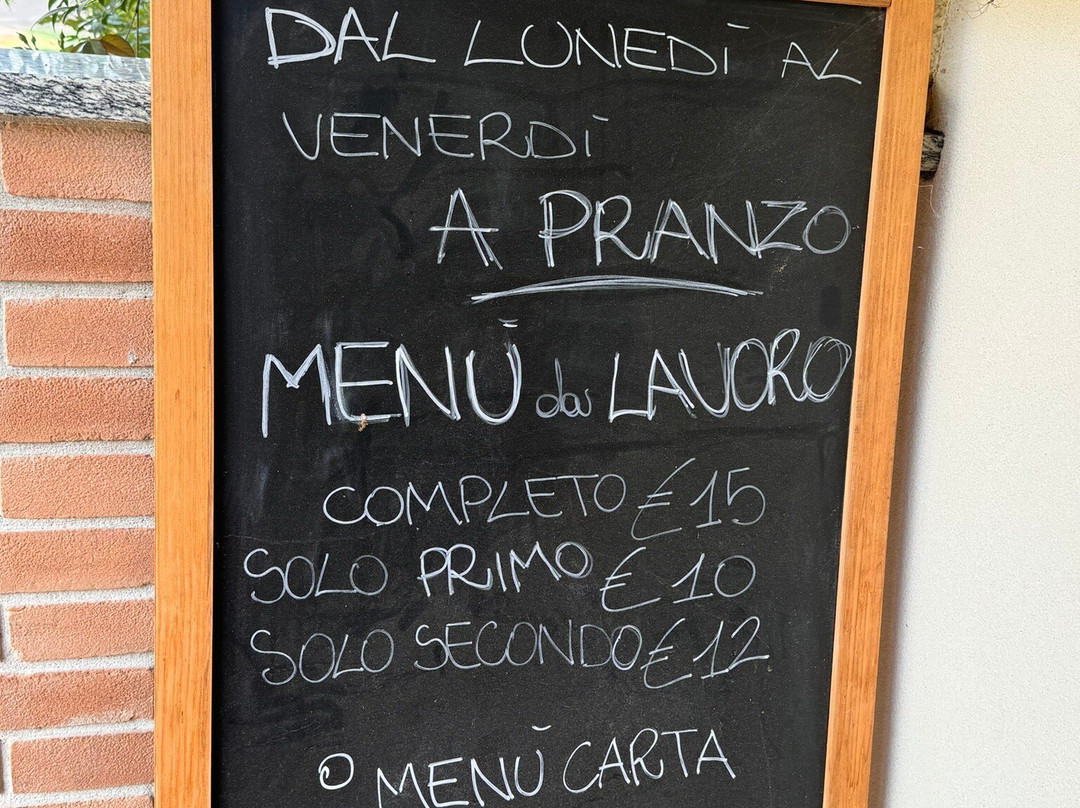 DAL LUNEDÌ AL
VENERDÌ
A PRANZO
MENÙ da LAVORO
COMPLETO € 15
SOLO PRIMO € 10
SOLO SECONDO € 12
O MENÙ CARTA